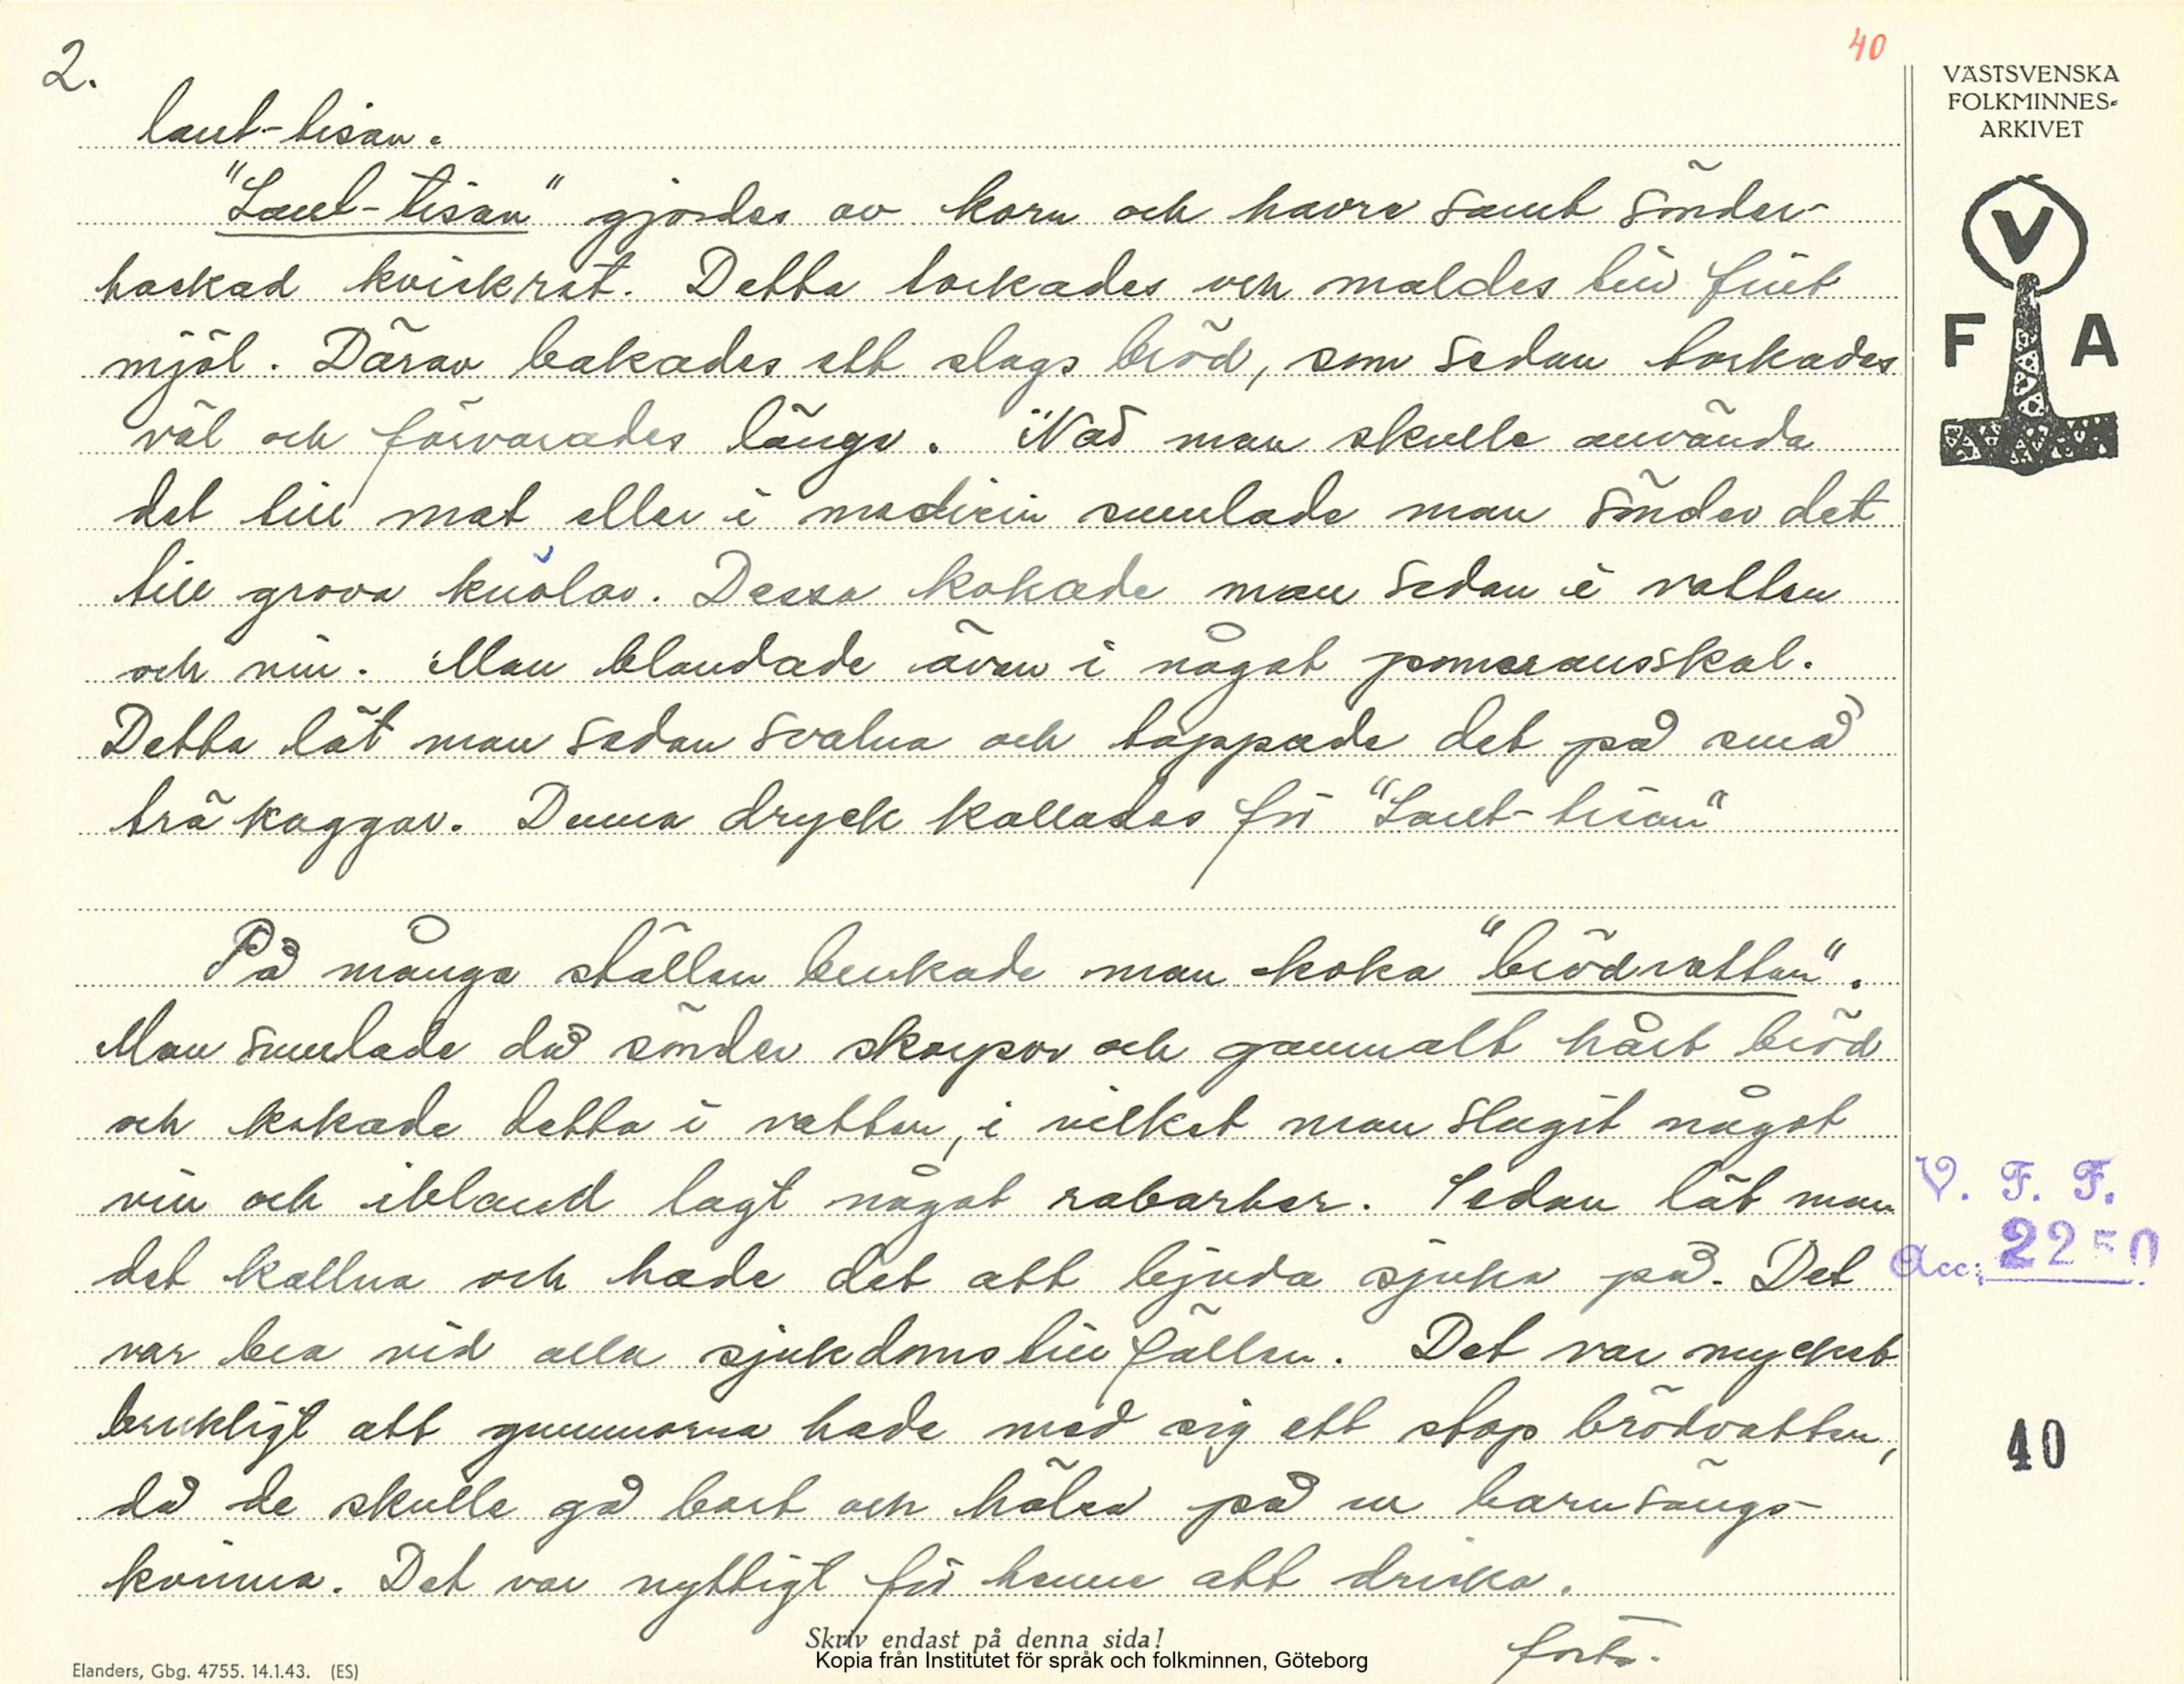 2.
40
VÄSTSVENSKA
FOLKMINNES-
ARKIVET
V
F A
lant-tisan.
"Lant-tisan" gjordes av korn och havre samt sönder-
hackad kvickrot. Detta torkades och maldes till fint
mjöl. Därav bakades ett slags bröd, som sedan torkades
väl och förvarades länge. När man skulle använda
det till mat eller i medicin smulade man sönder det
till grova knölar. Dessa kokade man sedan i vatten
och vin. Man blandade även i något pomeransskal.
Detta lät man sedan svalna och tappade det på små
träkaggar. Denna dryck kallades för "Lant-tisan"
På många ställen brukade man koka "brödvatten".
Man smulade då sönder skorpor och gammalt hårt bröd
och kokade detta i vatten, i vilket man slagit något
vin och ibland lagt något rabarber. Sedan lät man
det kallna och hade det att bjuda sjuka på. Det
var bra vid alla sjukdomstillfällen. Det var mycket
brukligt att gummorna hade med sig ett stop brödvatten,
då de skulle gå bort och hälsa på en barnsängs-
kvinna. Det var nyttigt för henne att dricka.
forts.
V. F. F.
Acc: 2250
40
Skriv endast på denna sida!
Kopia från Institutet för språk och folkminnen, Göteborg
Elanders, Gbg. 4755. 14.1.43. (ES)